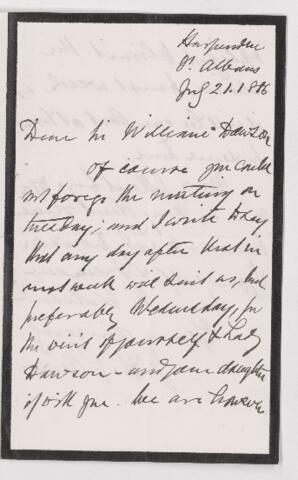 Harpenden
St. Albans
July 21. 1886
Dear Sir William Dawson
Of course you could
not forego the meeting on
tuesday; and I write to say
that any day after that in
next week will suit us, but
preferably Wednesday, for
the visit of yourself & Lady
Dawson - and your daughter
if with you. We are however